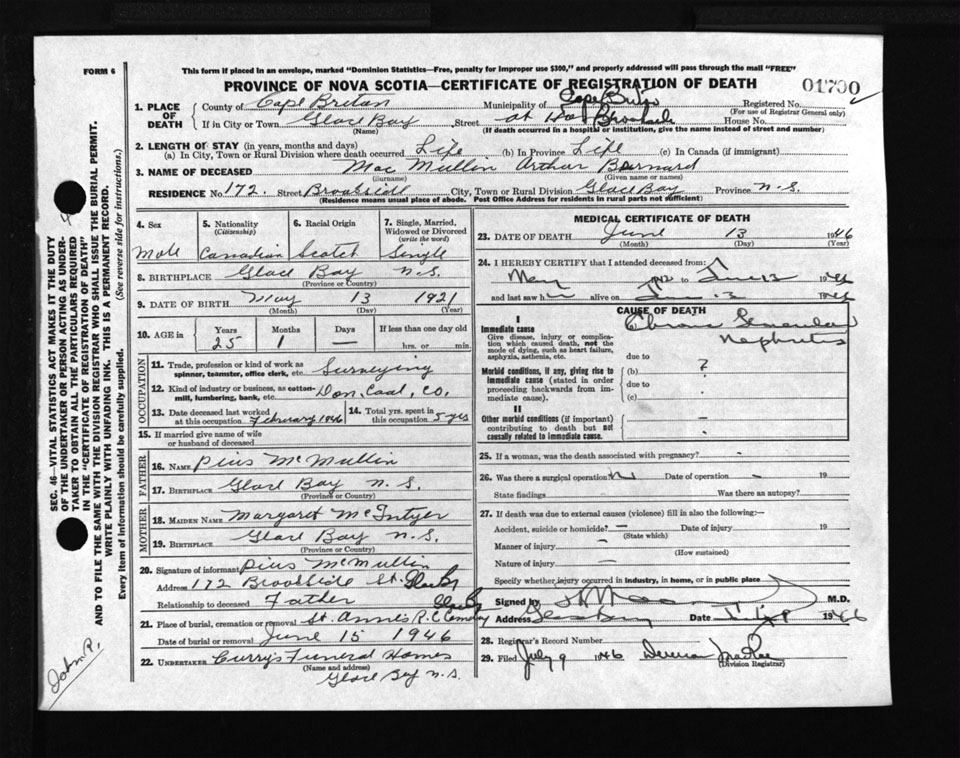 FORM 6
This form if placed in an envelope, marked "Dominion Statistics—Free, penalty for improper use $300," and properly addressed will pass through the mail "FREE"
PROVINCE OF NOVA SCOTIA—CERTIFICATE OF REGISTRATION OF DEATH
01700
1. PLACE OF DEATH
County of Cape Breton Municipality of Cape Breton Registered No.
(For use of Registrar General only)
If in City or Town Glace Bay Street at House No.
(Name) (If death occurred in a hospital or institution, give the name instead of street and number)
2. LENGTH OF STAY (in years, months and days)
(a) In City, Town or Rural Division where death occurred Life (b) In Province Life (c) In Canada (if immigrant)
3. NAME OF DECEASED Mac Mullin Arthur Bernard
(Surname) (Given name or names)
RESIDENCE No. 172 Street Brookside City, Town or Rural Division Glace Bay Province N.S.
(Residence means usual place of abode. Post Office Address for residents in rural parts not sufficient)
4. Sex 5. Nationality 6. Racial Origin 7. Single, Married, Widowed or Divorced
(Citizenship) (write the word)
Male Canadian Scotch Single
8. BIRTHPLACE Glace Bay N.S.
(Province or Country)
9. DATE OF BIRTH May 13 1921
(Month) (Day) (Year)
10. AGE in Years Months Days If less than one day old
25 1 — hrs. or min.
OCCUPATION
11. Trade, profession or kind of work as spinner, teamster, office clerk, etc. Surveying
12. Kind of industry or business, as cotton-mill, lumbering, bank, etc. Dom. Coal, Co.
13. Date deceased last worked at this occupation February 1946
14. Total yrs. spent in this occupation 5 yrs
15. If married give name of wife or husband of deceased
FATHER
16. NAME Pius McMullin
17. BIRTHPLACE Glace Bay N.S.
(Province or Country)
MOTHER
18. MAIDEN NAME Margaret McIntyer
19. BIRTHPLACE Glace Bay N.S.
(Province or Country)
20. Signature of informant Pius McMullin
Address 172 Brookside St. Glace Bay
Relationship to deceased Father
21. Place of burial, cremation or removal St. Anne's R.C. Cemetery Glace Bay
Date of burial or removal June 15 1946
22. UNDERTAKER Curry's Funeral Homes
(Name and address)
Glace Bay N.S.
MEDICAL CERTIFICATE OF DEATH
23. DATE OF DEATH June 13 1946
(Month) (Day) (Year)
24. I HEREBY CERTIFY that I attended deceased from:
May 1942 to June 13 1946
and last saw h alive on June 13 1946
CAUSE OF DEATH
I
Immediate cause
Give disease, injury or complication which caused death, not the mode of dying, such as heart failure, asphyxia, asthenia, etc.
Chronic Glomerular
Nephritis
due to
Morbid conditions, if any, giving rise to immediate cause (stated in order proceeding backwards from immediate cause).
(b) ?
due to
(c)
II
Other morbid conditions (if important) contributing to death but not causally related to immediate cause.
25. If a woman, was the death associated with pregnancy? -
26. Was there a surgical operation? No Date of operation — 19
State findings Was there an autopsy?
27. If death was due to external causes (violence) fill in also the following:—
Accident, suicide or homicide? — Date of injury 19
(State which)
Manner of injury —
(How sustained)
Nature of injury —
Specify whether injury occurred in industry, in home, or in public place
Signed by M.D.
Address Glace Bay Date 1946
28. Registrar's Record Number
29. Filed July 9 1946 MacRae
(Division Registrar)
SEC. 46—VITAL STATISTICS ACT MAKES IT THE DUTY
OF THE UNDERTAKER OR PERSON ACTING AS UNDERTAKER
TO OBTAIN ALL THE PARTICULARS REQUIRED
IN THE "CERTIFICATE OF REGISTRATION OF DEATH"
AND TO FILE THE SAME WITH THE DIVISION REGISTRAR WHO SHALL ISSUE THE BURIAL PERMIT.
WRITE PLAINLY WITH UNFADING INK. THIS IS A PERMANENT RECORD.
Every item of information should be carefully supplied. (See reverse side for instructions.)
John P.